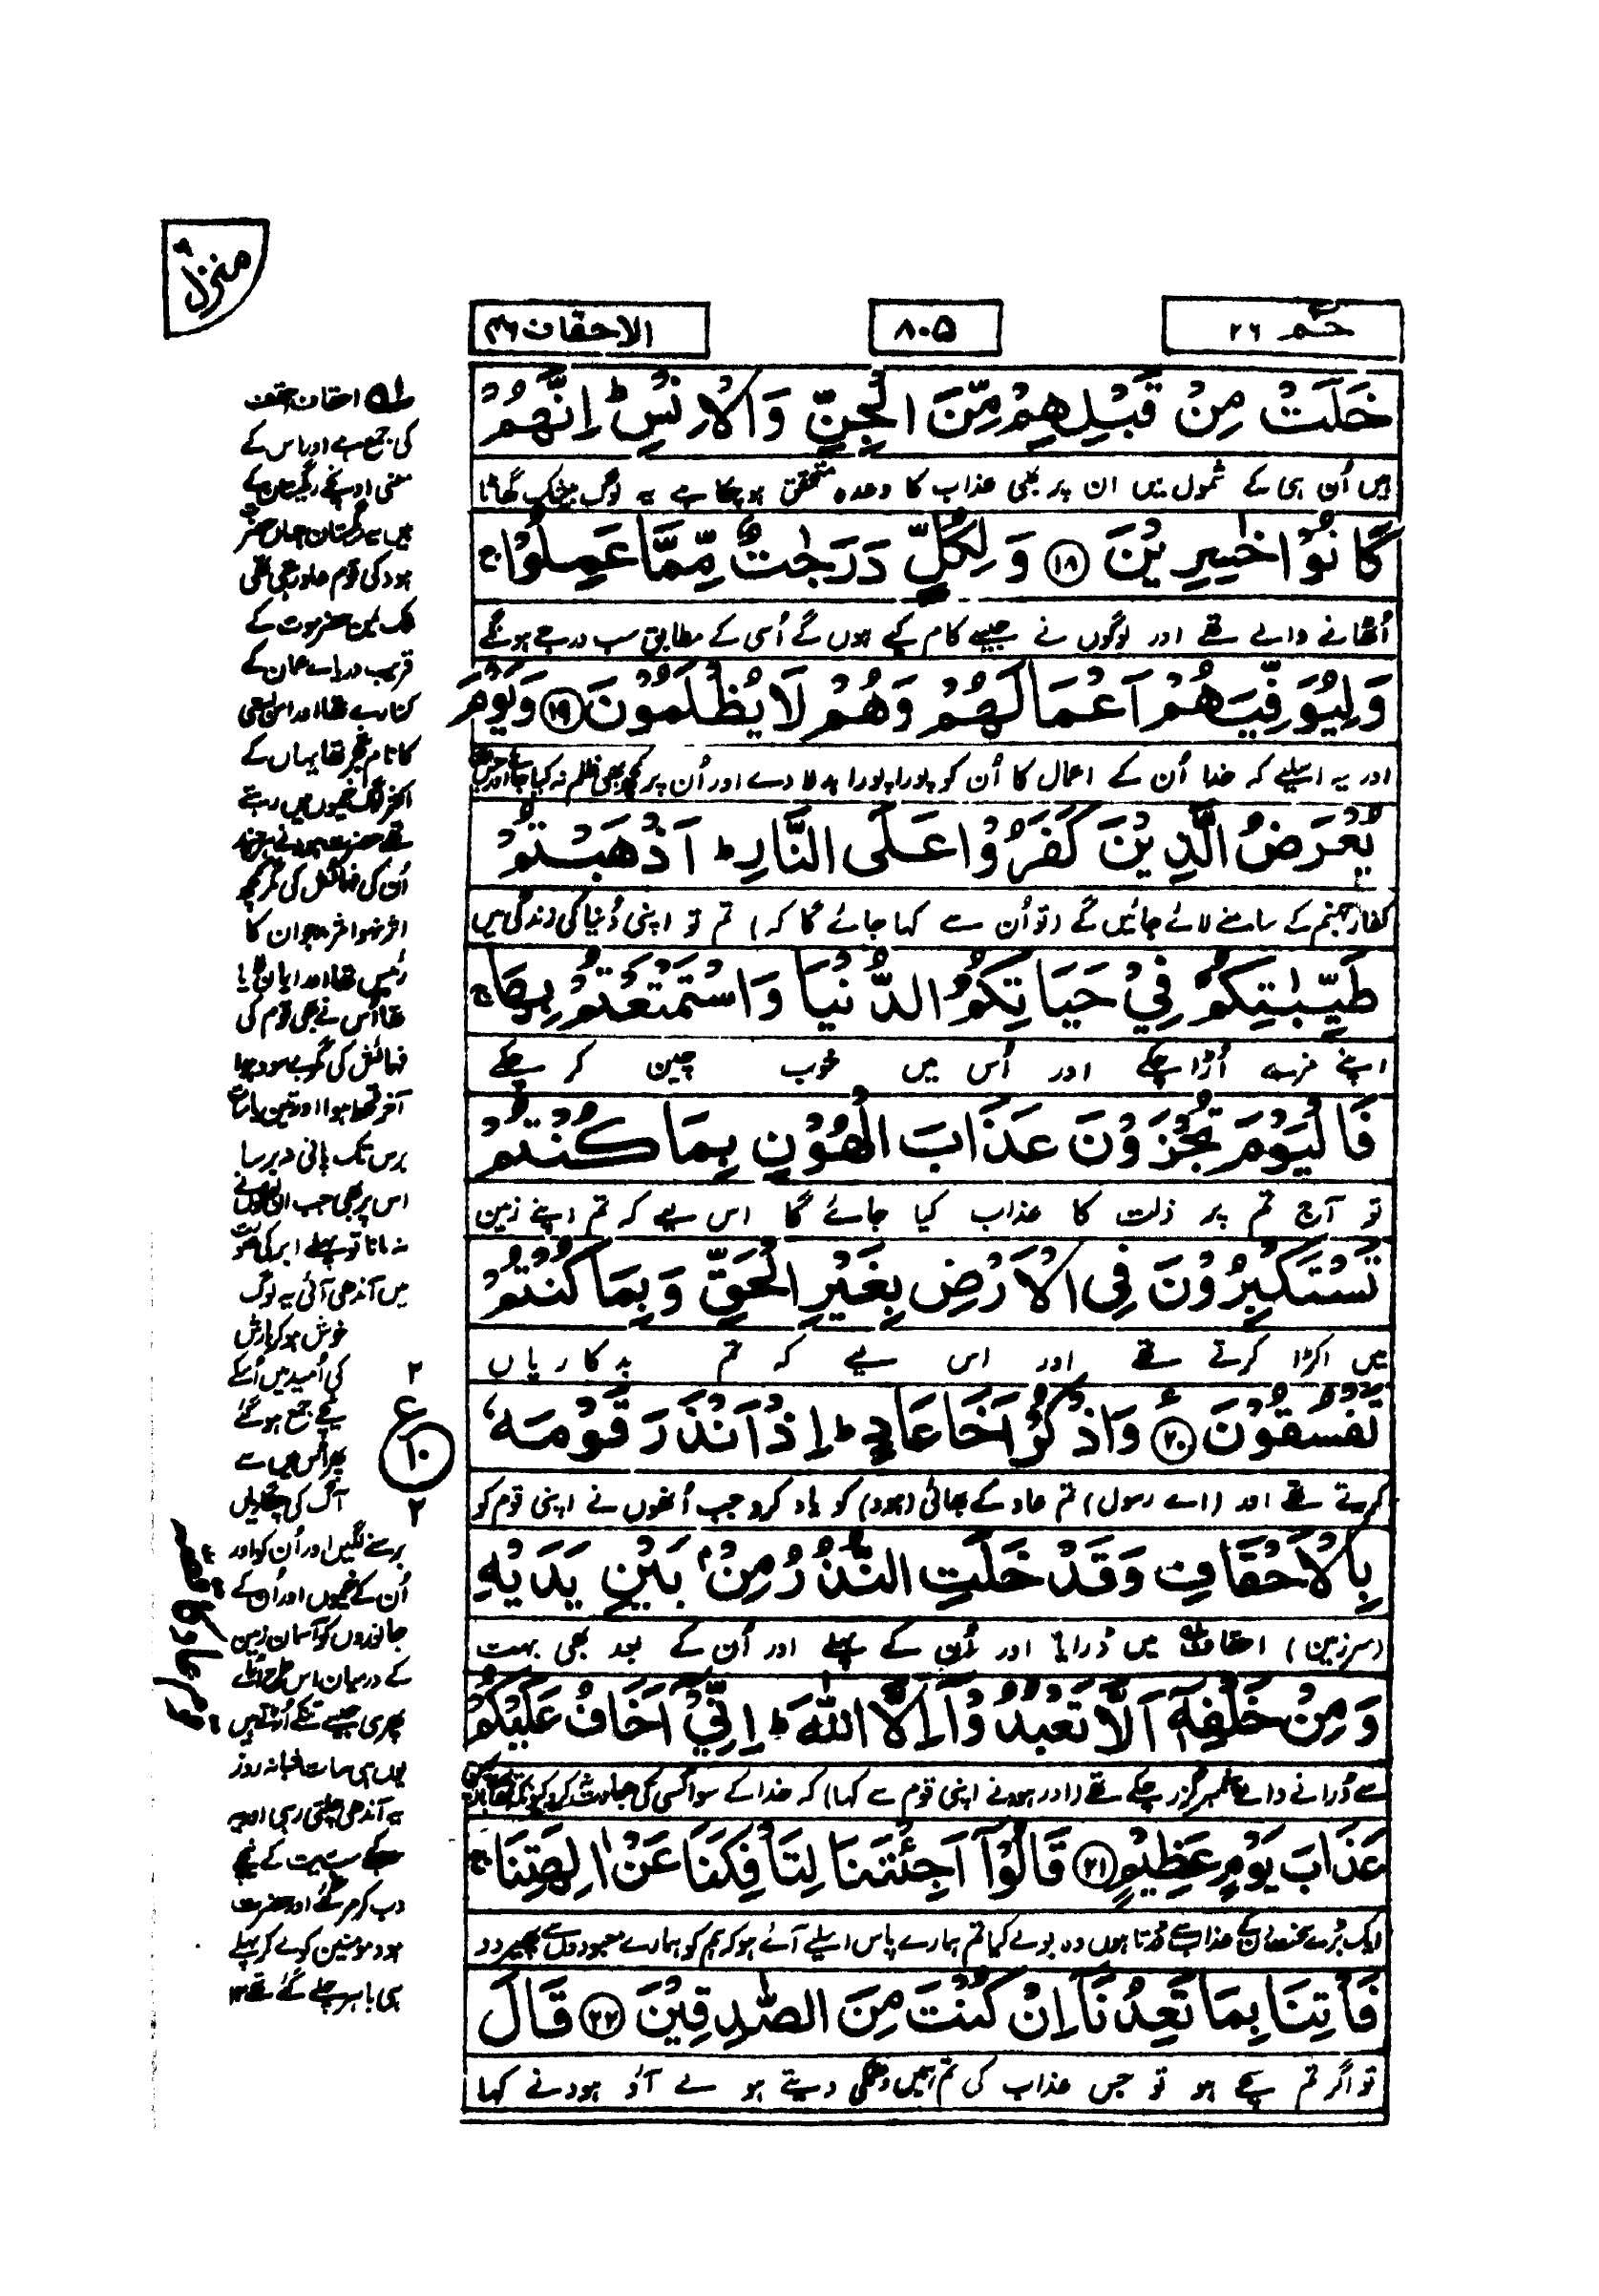 منزل
حٰمٓ ۲۶
۸۰۵
الاحقاف ۴۶
خَلَتْ مِنْ قَبْلِهِمْ مِّنَ الْجِنِّ وَالْاِنْسِ ؕ اِنَّهُمْ
ہیں اُن ہی کے شمول میں ان پر بھی عذاب کا وعدہ متحقق ہو چکا ہے یہ لوگ بیشک گھاٹا
كَانُوْا خٰسِرِيْنَ ﴿۱۸﴾ وَلِكُلٍّ دَرَجٰتٌ مِّمَّا عَمِلُوْا ۚ
اُٹھانے والے تھے اور لوگوں نے جیسے کام کیے ہوں گے اُسی کے مطابق سب درجے ہونگے
وَلِيُوَفِّيَهُمْ اَعْمَالَهُمْ وَهُمْ لَا يُظْلَمُوْنَ ﴿۱۹﴾ وَيَوْمَ
اور یہ اسلیے کہ خدا اُن کے اعمال کا اُن کو پورا پورا بدلا دے اور اُن پر کچھ بھی ظلم نہ کیا جائے
يُعْرَضُ الَّذِيْنَ كَفَرُوْا عَلَى النَّارِ ؕ اَذْهَبْتُمْ
کفار جہنم کے سامنے لائے جائیں گے (تو اُن سے کہا جائے گا کہ) تم تو اپنی دُنیا کی زندگی میں
طَيِّبٰتِكُمْ فِيْ حَيَاتِكُمُ الدُّنْيَا وَاسْتَمْتَعْتُمْ بِهَا ۚ
اپنے مزے اُڑا چکے اور اُس میں خوب چین کر چکے
فَالْيَوْمَ تُجْزَوْنَ عَذَابَ الْهُوْنِ بِمَا كُنْتُمْ
تو آج تم پر ذلت کا عذاب کیا جائے گا اس لیے کہ تم اپنے زمین
تَسْتَكْبِرُوْنَ فِى الْاَرْضِ بِغَيْرِ الْحَقِّ وَبِمَا كُنْتُمْ
میں اکڑا کرتے تھے اور اس لیے کہ تم بدکاریاں
تَفْسُقُوْنَ ﴿۲۰﴾ وَاذْكُرْ اَخَا عَادٍ ؕ اِذْ اَنْذَرَ قَوْمَهٗ
کرتے تھے اور (اے رسول) تم عاد کے بھائی (ہود) کو یاد کرو جب اُنھوں نے اپنی قوم کو
بِالْاَحْقَافِ وَقَدْ خَلَتِ النُّذُرُ مِنْۢ بَيْنِ يَدَيْهِ
(سرزمین) احقاف میں ڈرایا اور اُن کے پہلے اور اُن کے بعد بھی بہت
وَمِنْ خَلْفِهٖٓ اَلَّا تَعْبُدُوْٓا اِلَّا اللّٰهَ ؕ اِنِّيْٓ اَخَافُ عَلَيْكُمْ
سے ڈرانے والے پیغمبر گزر چکے تھے (اور ہود نے اپنی قوم سے کہا) کہ خدا کے سوا کسی کی عبادت نہ کرو کیونکہ
عَذَابَ يَوْمٍ عَظِيْمٍ ﴿۲۱﴾ قَالُوْٓا اَجِئْتَنَا لِتَاْفِكَنَا عَنْ اٰلِهَتِنَا ۚ
ایک بڑے سخت دن کے عذاب سے ڈرتا ہوں وہ بولے کیا تم ہمارے پاس اسلیے آئے ہو کہ ہم کو ہمارے معبودوں سے پھیر دو
فَاْتِنَا بِمَا تَعِدُنَآ اِنْ كُنْتَ مِنَ الصّٰدِقِيْنَ ﴿۲۲﴾ قَالَ
تو اگر تم سچے ہو تو جس عذاب کی تم ہمیں دھمکی دیتے ہو لے آؤ ہود نے کہا
احقاف حقف
کی جمع ہے اور اس کے
معنی اونچے ریگستان کے
ہیں یہ ریگستان جہاں حضرت
ہود کی قوم عاد رہتی تھی
ملک یمن حضرموت کے
قریب دریائے عمان کے
کنارے تھا اور اس بستی
کا نام تھا یہاں کے
اکثر لوگ خیموں میں رہتے
تھے حضرت ہود نے ہر چند
اُن کی فہمائش کی مگر کچھ
اثر نہوا جو ان کا
رئیس تھا اور ایمان لایا
تھا اُس نے بھی قوم کی
فہمائش کی مگر بے سود ہوا
آخر قحط ہوا اور تین
برس تک پانی نہ برسا
اس پر بھی جب ان لوگوں نے
نہ مانا تو پہلے ابر کی صورت
میں آندھی آئی یہ لوگ
خوش ہو کر بارش
کی اُمید میں اُسکے
نیچے جمع ہو گئے
پھر اُس میں سے
آگ کی چنگاریاں
برسنے لگیں اور اُن کو اور
اُن کے خیموں اور اُن کے
جانوروں کو آسمان زمین
کے درمیان اس طرح اُڑائے
پھری جیسے تنکے اُڑتے ہیں
یوں ہی سات شبانہ روز
یہ آندھی چلتی رہی اور یہ
سب ریت کے نیچے
دب کر مر گئے اور حضرت
ہود مومنین کو لے کر پہلے
ہی باہر چلے گئے تھے ۱۲
۲
ع
۱۰
۲
قوم عاد کا قصہ